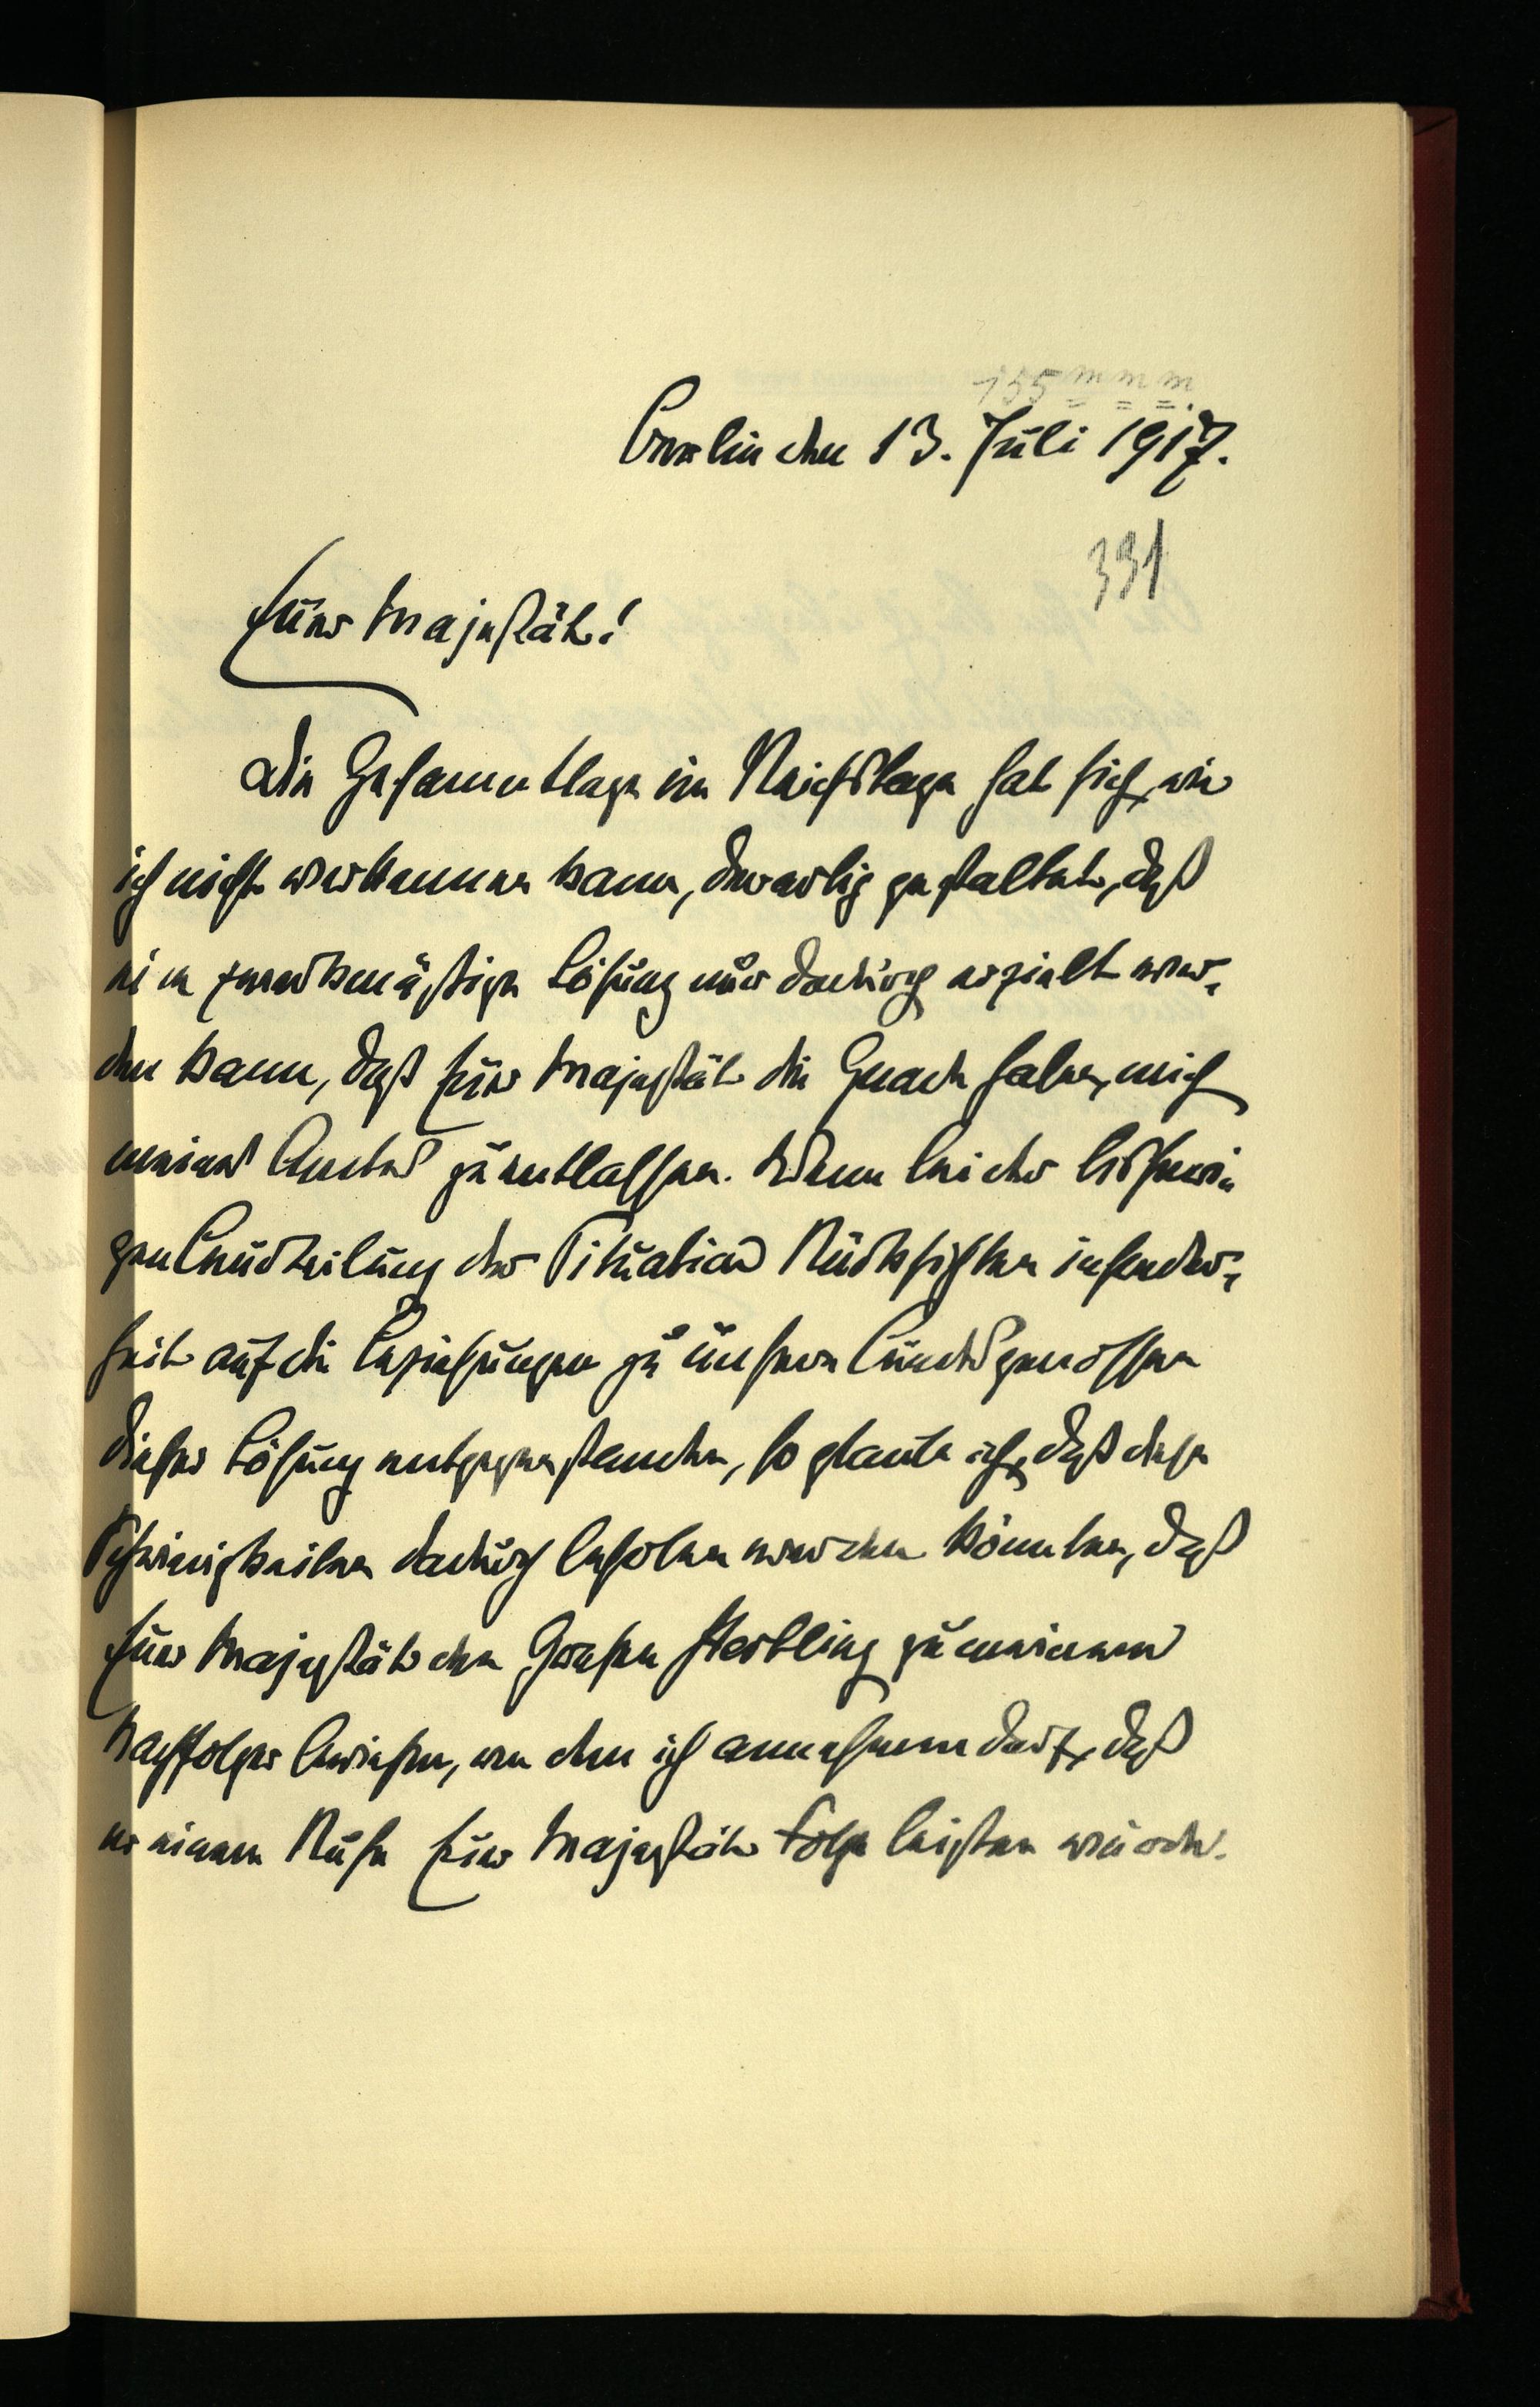 155 m m m
Berlin den 13. Juli 1917.
331
Eure Majestät!
Die Gesammtlage im Reichstage hat sich, wie
ich nicht verkennen kann, derartig gestaltet, daß
eine zweckmäßige Lösung nur dadurch erzielt wer-
den kann, daß Eure Majestät die Gnade haben, mich
meines Amtes zu entlassen. Wenn bei der bisheri
gen Beurteilung der Situation Rücksichten insonder-
heit auf die Beziehungen zu unseren Bundesgenossen
dieser Lösung entgegenstanden, so glaube ich, daß diese
Schwierigkeiten dadurch behoben werden könnten, daß
Eure Majestät den Grafen Hertling zu meinem
Nachfolger beriefen, von dem ich annehmen darf, daß
er einem Rufe Eure Majestät Folge leisten würde.